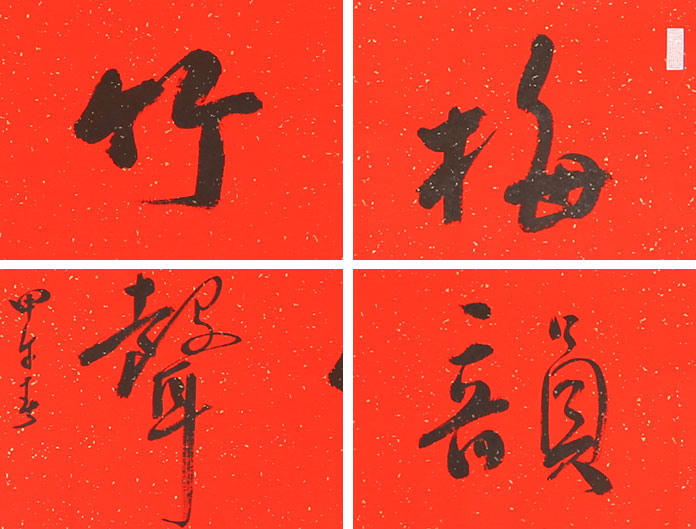 梅韻
竹聲
甲午春